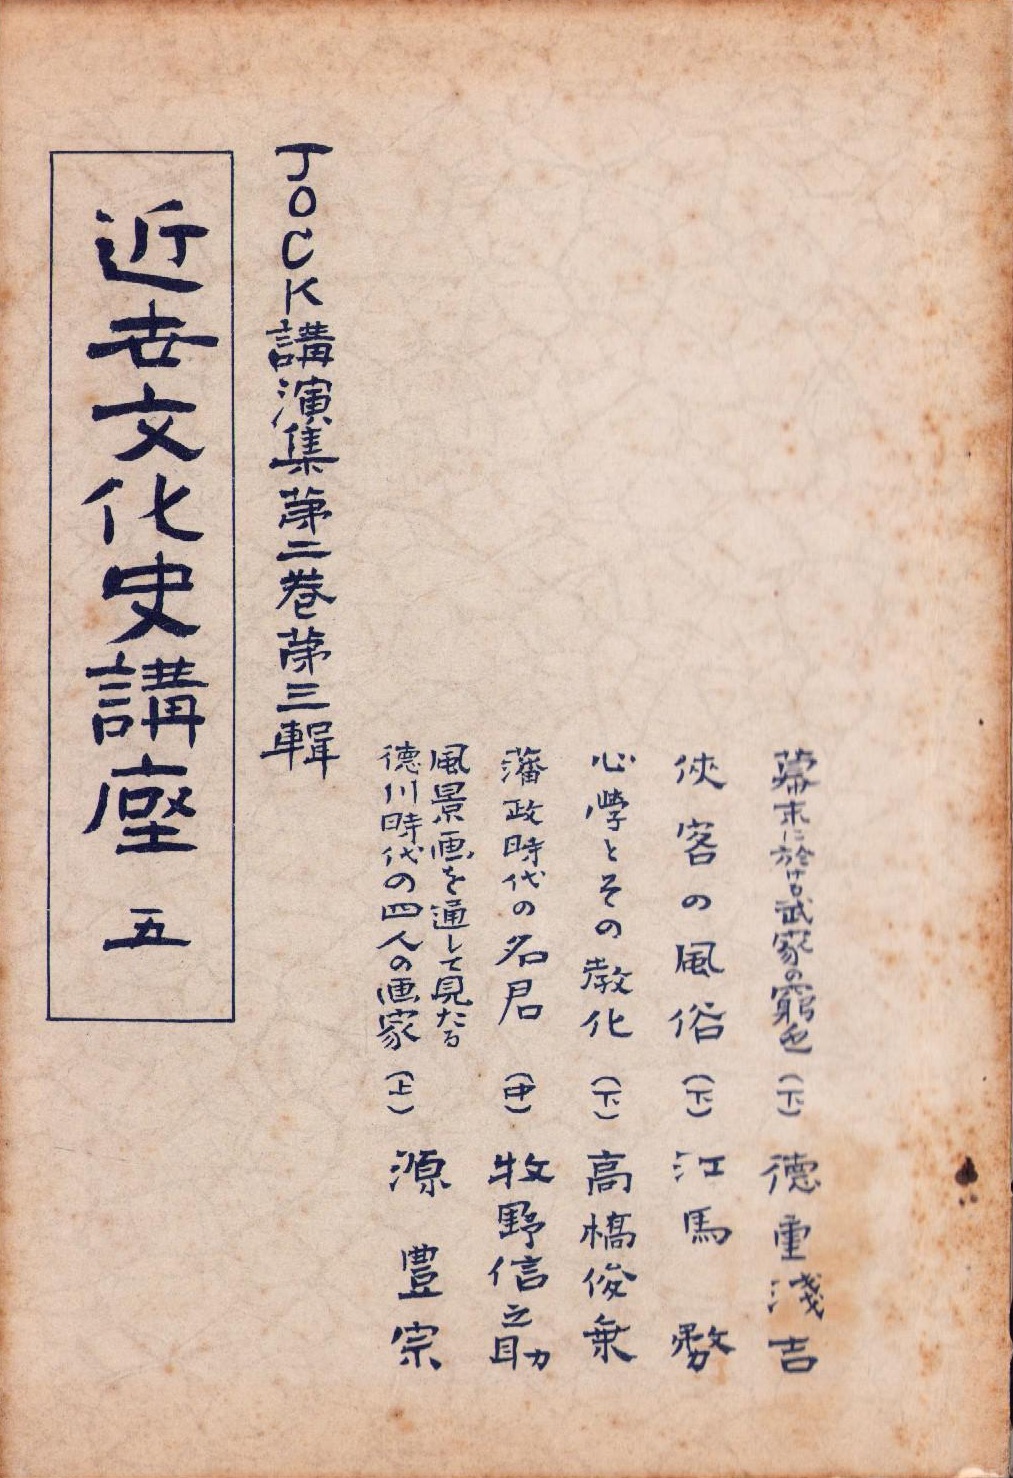 幕末に於ける武家の窮乏（下）德重淺吉
俠客の風俗（下）江馬務
心學とその敎化（下）高橋俊乗
藩政時代の名君（中）牧野信之助
風景画を通して見たる
德川時代の四人の画家（上）源豊宗
JOCK講演集第二巻第三輯
近世文化史講座 五